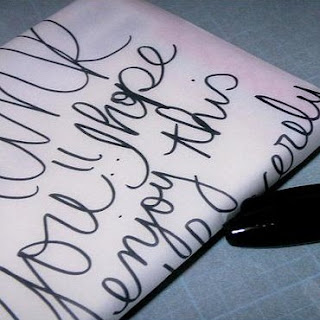 ank
you!! I hope
enjoy this
cerely